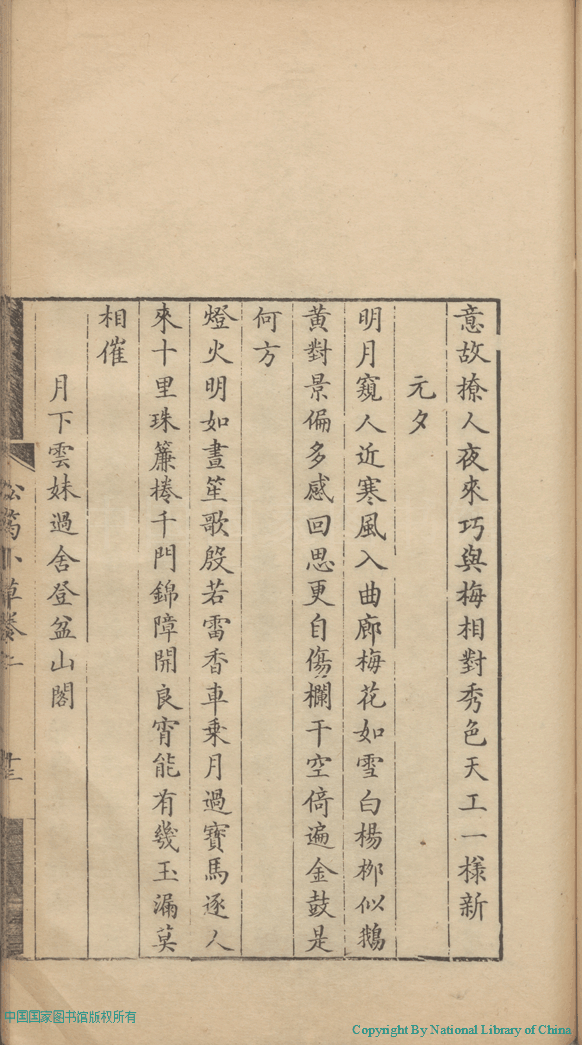 意故撩人夜來巧與梅相對秀色天工一樣新
元夕
明月窺人近寒風入曲廊梅花如雪白楊栁似鵝
黃對景偏多感回思更自傷欄干空倚遍金鼓是
何方
燈火明如晝笙歌殷若雷香車乗月過寶馬逐人
來十里珠簾捲千門錦障開良宵能有幾玉漏莫
相催
月下雲妹過舍登盆山閣
小草
十三
中国国家图书馆版权所有
Copyright By National Library of China